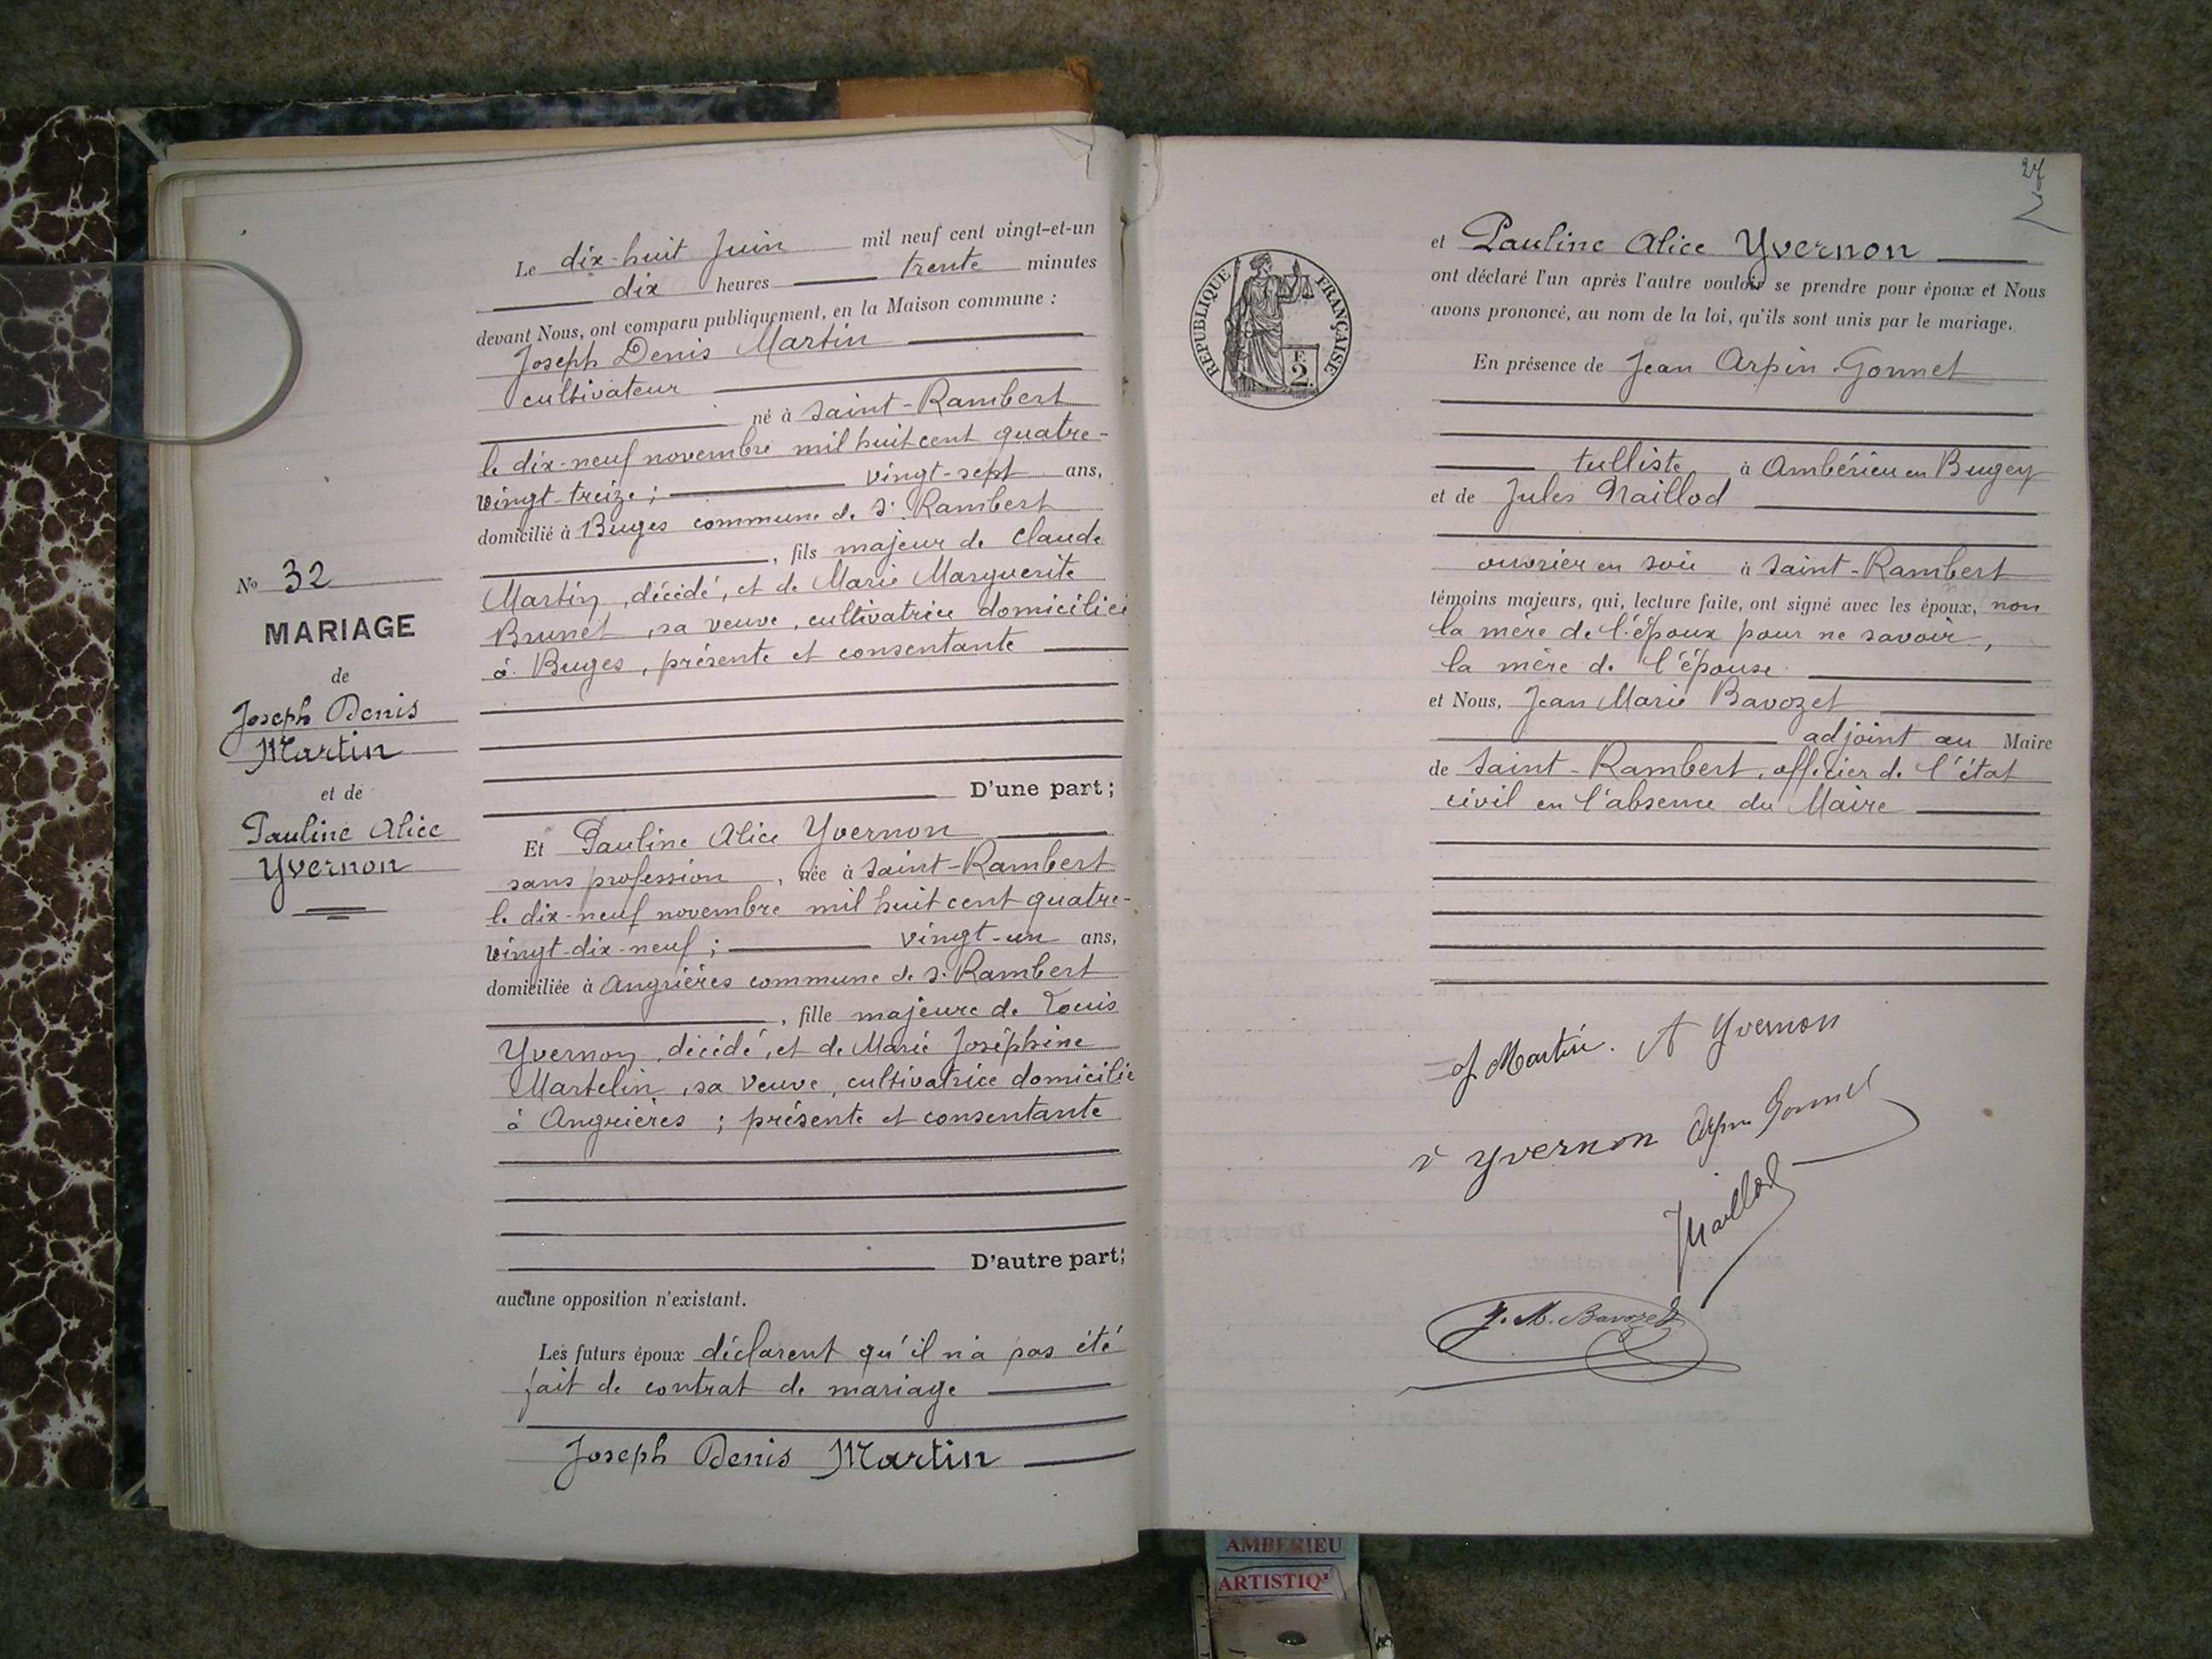 Le dix-huit Juin mil neuf cent vingt-et-un
dix heures trente minutes
devant Nous, ont comparu publiquement, en la Maison commune :
Joseph Denis Martin
cultivateur
né à Saint-Rambert
le dix-neuf novembre mil huit cent quatre-
vingt-treize ; vingt-sept ans,
domicilié à Buges commune de St Rambert
, fils majeur de Claude
Martin, décédé, et de Marie Marguerite
Brunet, sa veuve, cultivatrice domiciliée
à Buges, présente et consentante
D'une part ;
Et Pauline Alice Yvernon
sans profession , née à Saint-Rambert
le dix-neuf novembre mil huit cent quatre-
vingt-dix-neuf ; vingt-un ans,
domiciliée à Angrières commune de St Rambert
, fille majeure de Louis
Yvernon, décédé, et de Marie Joséphine
Martelin, sa veuve, cultivatrice domicilie
à Angrières ; présente et consentante
D'autre part;
aucune opposition n'existant.
Les futurs époux déclarent qu'il n'a pas été
fait de contrat de mariage
Joseph Denis Martin
No 32
MARIAGE
de
Joseph Denis
Martin
et de
Pauline Alice
Yvernon
27
RÉPUBLIQUE FRANÇAISE
F.
2.
et Pauline Alice Yvernon
ont déclaré l'un après l'autre vouloir se prendre pour époux et Nous
avons prononcé, au nom de la loi, qu'ils sont unis par le mariage.
En présence de Jean Arpin-Gonnet
tulliste à Ambérieu en Bugey
et de Jules Maillod
ouvrier en soie à Saint-Rambert
témoins majeurs, qui, lecture faite, ont signé avec les époux, non
la mère de l'époux pour ne savoir,
la mère de l'épouse
et Nous, Jean Marie Bavozet
adjoint au Maire
de Saint-Rambert, officier de l'état
civil en l'absence du Maire
J Martin. A Yvernon
Yvernon Arpin Gonnet
Maillod
J. M. Bavozet
AMBERIEU
ARTISTIQ